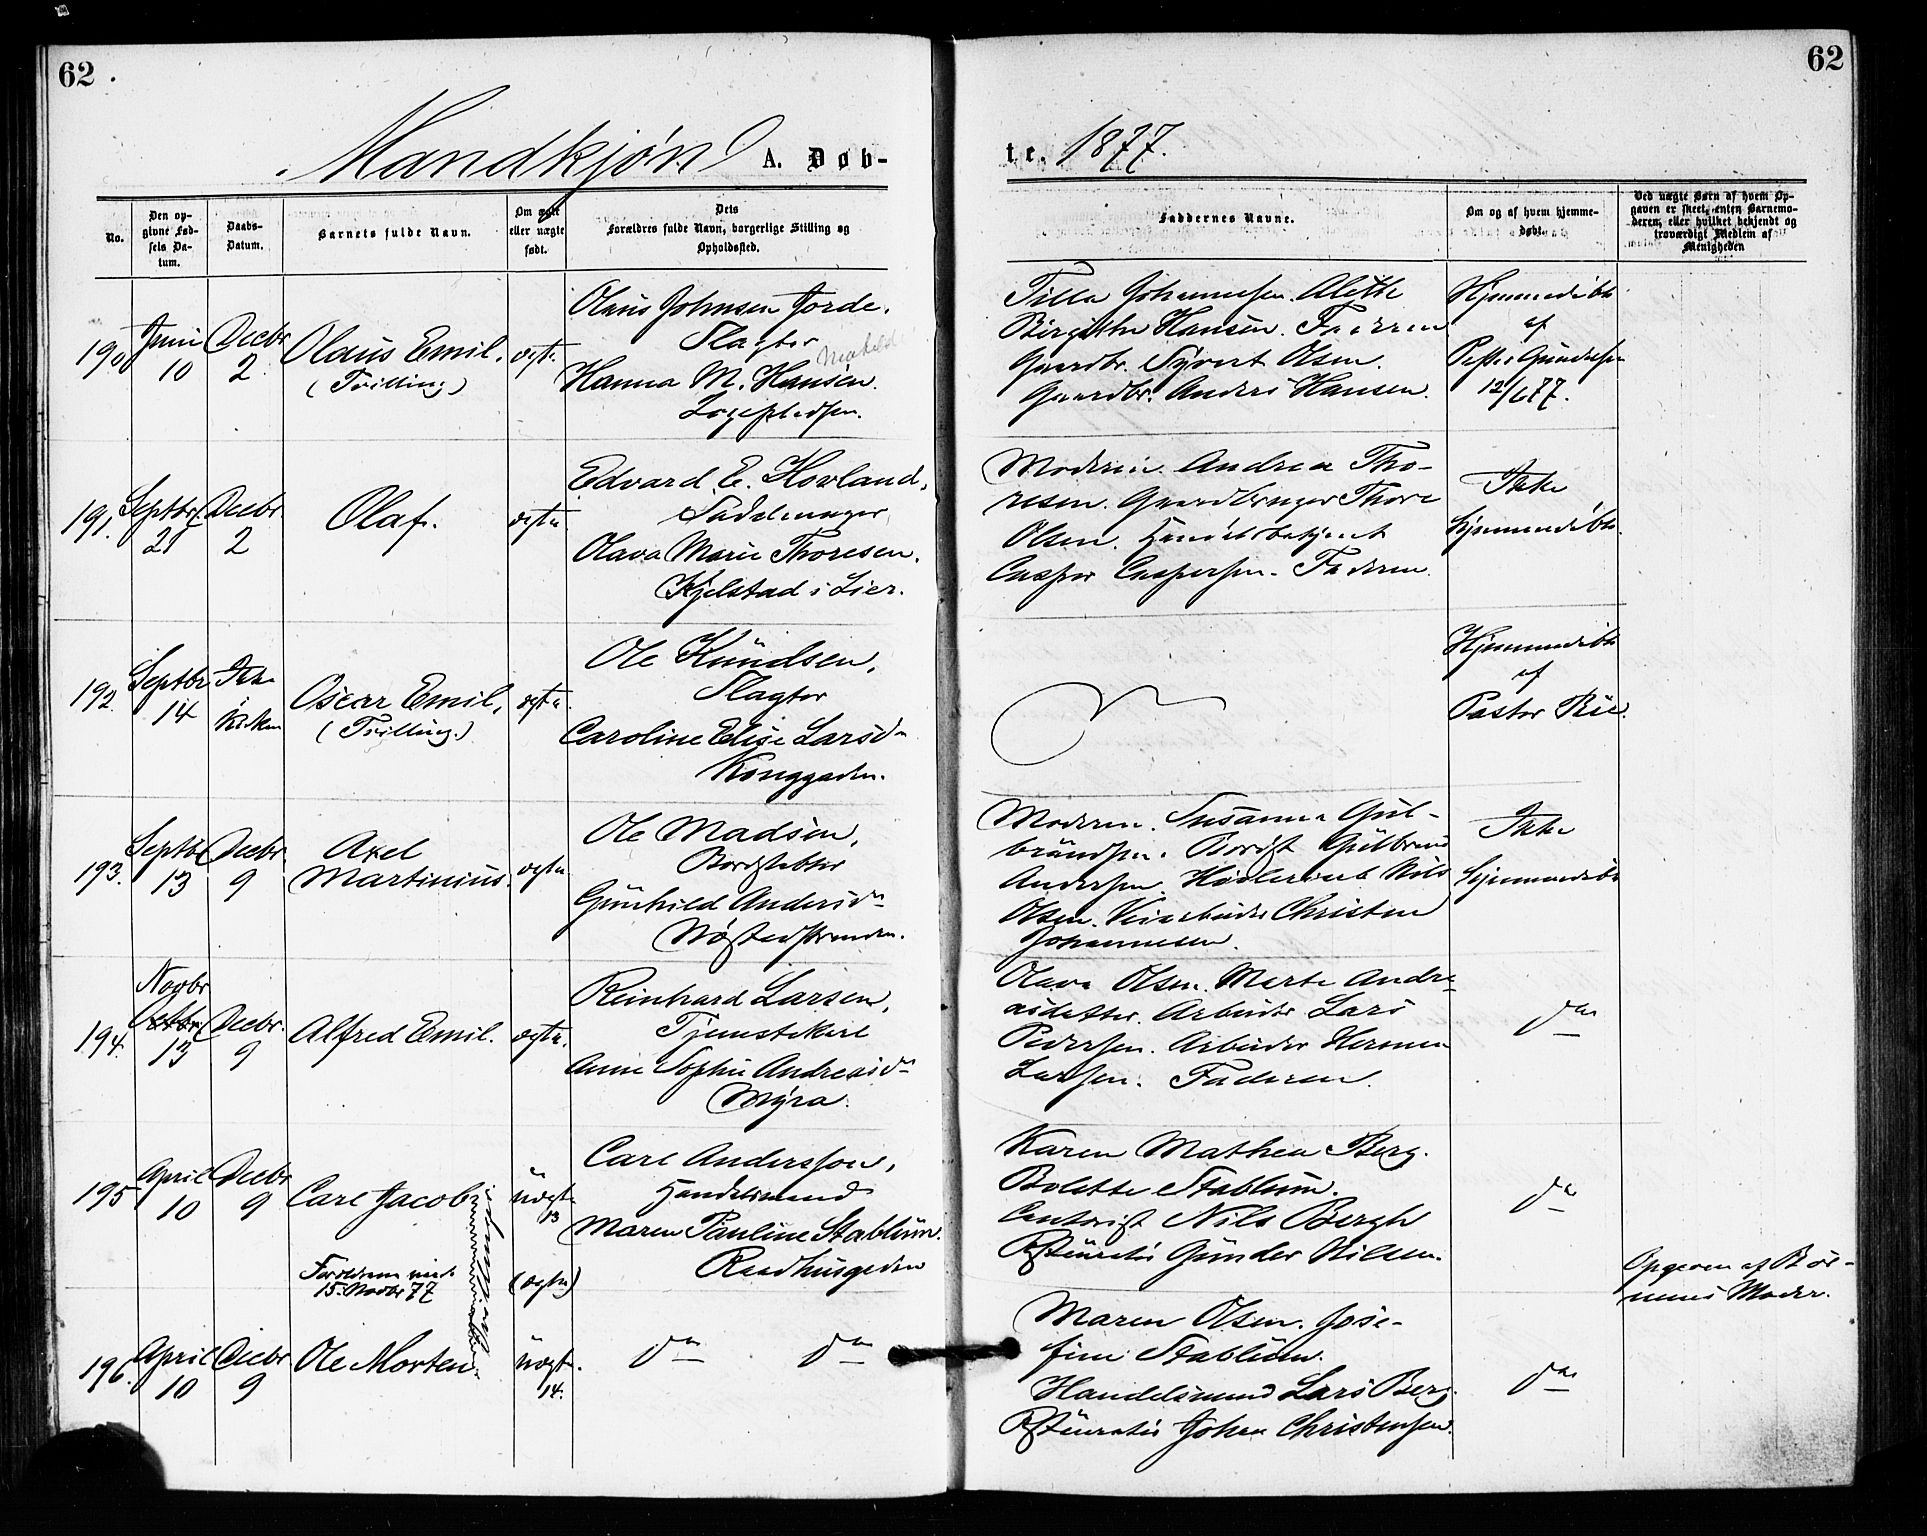 62
62
Mandkjøn A. Døb-
te. 1877.
No.
Den op-
givne Fød-
sels Da-
tum.
Daabs-
Datum.
Barnets fulde Navn.
Om ægte
eller uægte
født.
Dets
Forældres fulde Navn, borgerlige Stilling og
Opholdssted.
Faddernes Navne.
Om og af hvem hjemme-
døbt.
Ved uægte Børn af hvem Op-
gaven er skeet, enten Barnemo-
deren, eller hvilket bekjendt og
troværdigt Medlem af
Menigheden
190
Juni
10
Decbr
2
Olaus Emil.
(Tvilling)
ægte
Olaus Johnsen Jorde.
Slagter
Hanna M. Hansen.
Johannesen. Alethe
Birgithe Hansen. Faderen
Gaardbr. Syvert Olsen.
Gaardbr. Anders Hansen.
Hjemmedøbt
af
12/6 77.
191.
Septbr.
21
Decbr.
2
Olaf.
ægte
Edvard E. Hovland,
Sadelmager
Olava Marie Thoresen.
Kjelstad i Lier.
Moderen. Andrea Tho-
resen. Gaardbruger Thore
Olsen. Handelsbetjent
Casper Caspersen. Faderen
Ikke
hjemmedøbt.
192.
Septbr
14
Ikke
i
Kirken
Oscar Emil,
(Tvilling.)
ægte.
Ole Knudsen,
Slagter
Caroline Elise Larsd
Konggaden.
Hjemmedøbt
af
Pastor
193.
Septbr
13
Decbr.
9
Axel
Martinius.
ægte
Ole Madsen,
Bordstabler
Gunhild Andersd
Nøstedstranden.
Moderen. Susanne Gul-
brandsen. Gulbrand
Andersen. Nils
Olsen. Christen
Johannesen.
Ikke
hjemmedøbt
194.
Novbr
Octbr
13
Decbr.
9
Alfred Emil.
ægte.
Reinhard Larsen,
Tjenestekarl
Anne Sophie Andreasd
Myra.
Olava Olsen. Marte Andre-
asdatter. Arbeider Lars
Pedersen. Arbeider Herman
Larsen. Faderen.
do
195
April
10
Decbr
9
Carl Jacob
Tvillinger
Forældrene viede
15. Novbr 77
uægte
13
(ægte)
Carl Andersson,
Handelsmand
Maren Pauline Stablum.
Raadhusgaden
Karen Mathea Berg.
Bolette Stablum.
Contorist Nils Bergh
Restauratør Gunder Nilsen.
do
Opgaven af Bør-
nenes Moder.
196.
April
10
Decbr
9
Ole Morten.
uægte.
14.
do do
Maren Olsen. Jose-
fine Stablum.
Handelsmand Lars Berg.
Restauratør Johan Christensen.
do